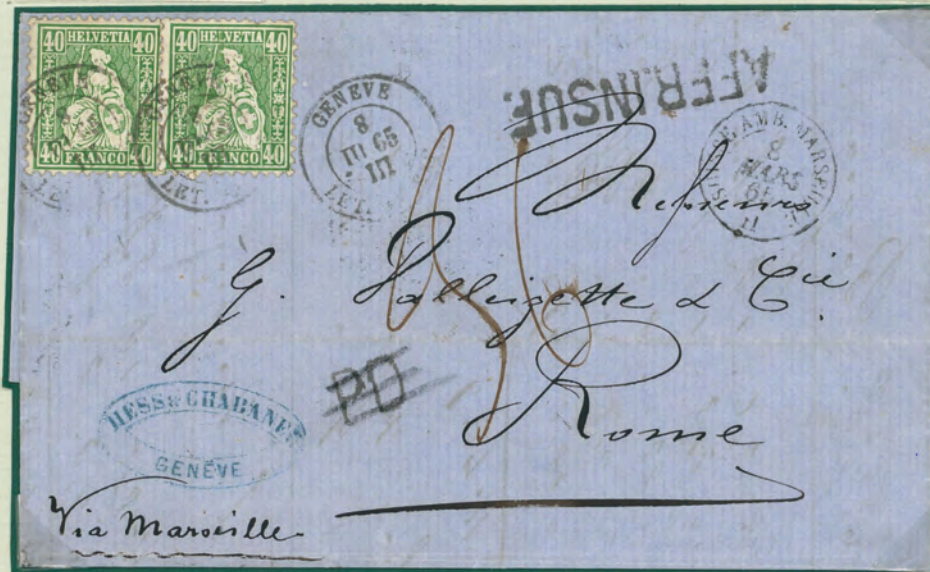 40 HELVETIA 40
40 FRANCO 40
40 HELVETIA 40
40 FRANCO 40
GENEVE
LET.
GENEVE
8
III 65
III
LET.
AFFR.INSUF.
AMB. MARS
8
MARS
II
Messieurs
G. & Cie
Rome
PD
HESS & CHABANEL
GENÈVE
Via Marseille